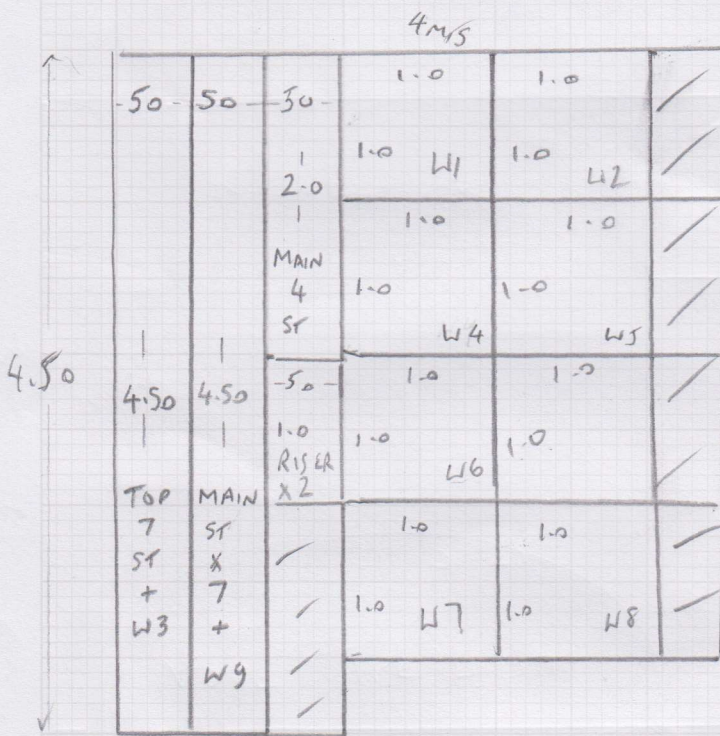 4M/S
-50-
50
-50-
1.0
1.0
2.0
1.0 W1
1.0 W2
1.0
1.0
MAIN
4
ST
1.0
1.0
W4
W5
4.50
4.50
4.50
-50-
1.0
1.0
1.0
RISER
X2
1.0
W6
1.0
TOP
7
ST
+
W3
MAIN
ST
X
7
+
W9
1.0
1.0
1.0 W7
1.0 W8